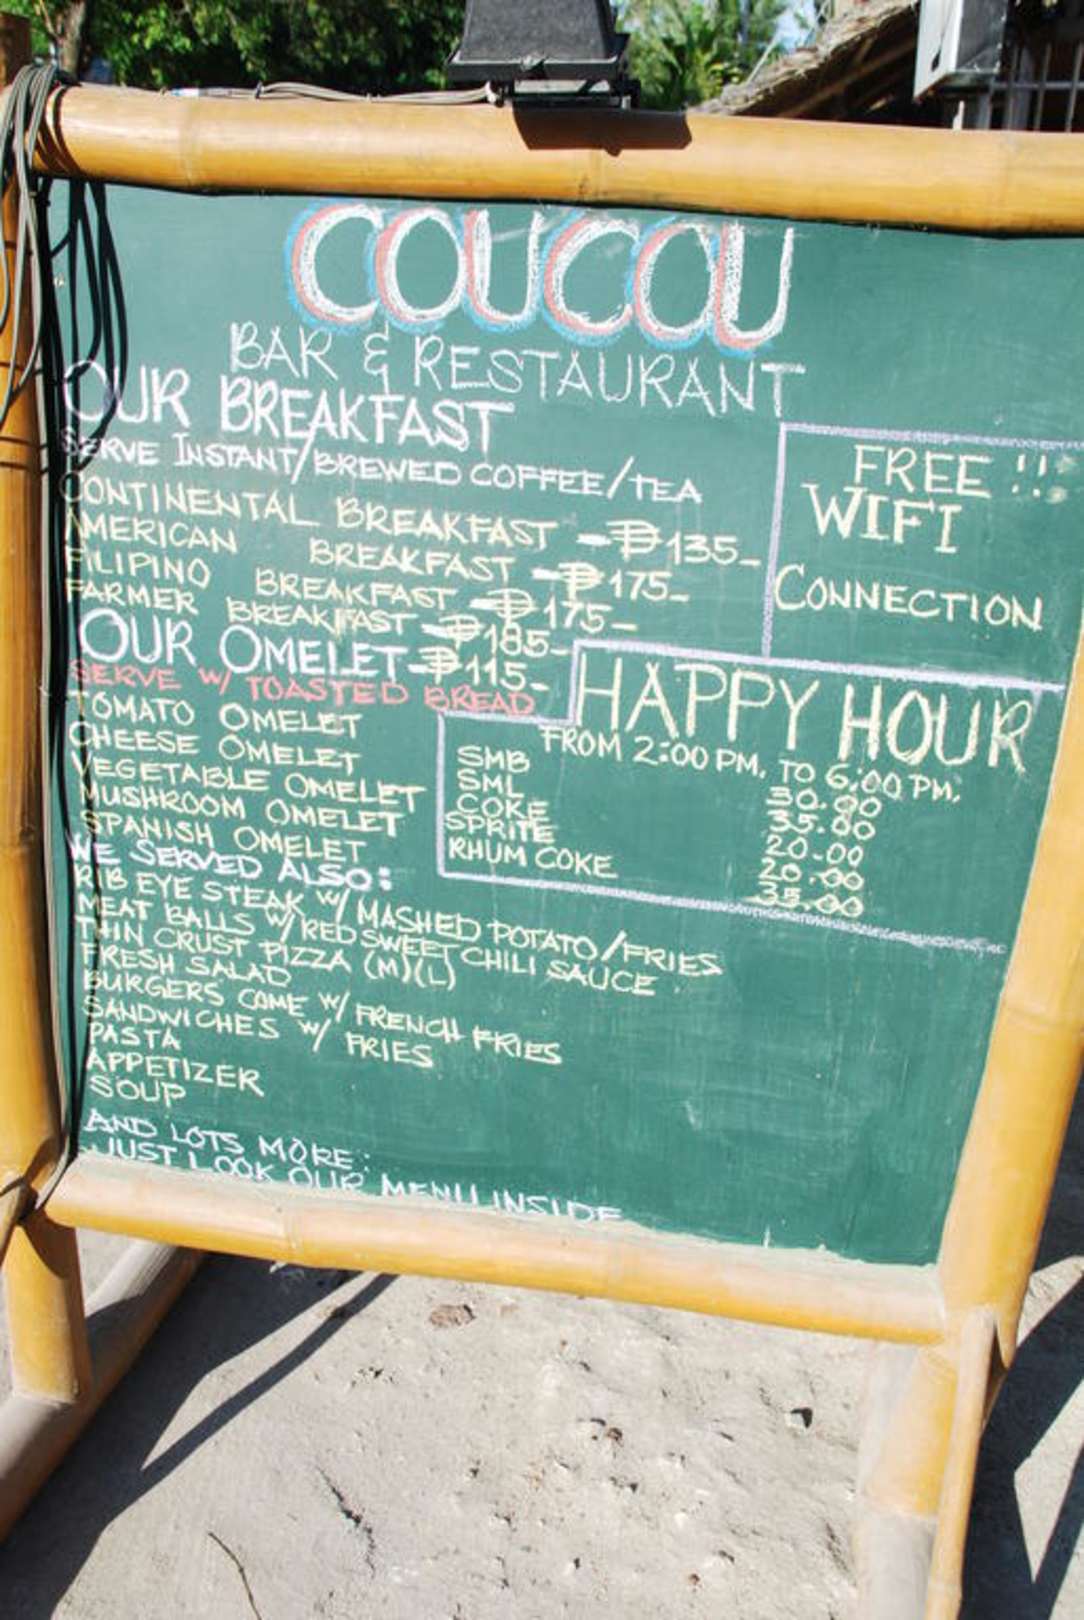 COUCOU
BAR & RESTAURANT
OUR BREAKFAST
SERVE INSTANT/BREWED COFFEE/TEA
CONTINENTAL BREAKFAST - ₱135-
AMERICAN BREAKFAST - ₱175-
FILIPINO BREAKFAST - ₱175-
FARMER BREAKFAST - ₱185-
OUR OMELET - ₱115-
SERVE W/ TOASTED BREAD
TOMATO OMELET
CHEESE OMELET
VEGETABLE OMELET
MUSHROOM OMELET
SPANISH OMELET
WE SERVED ALSO:
RIB EYE STEAK W/ MASHED POTATO/FRIES
MEAT BALLS W/ RED SWEET CHILI SAUCE
THIN CRUST PIZZA (M)(L)
FRESH SALAD
BURGERS COME W/ FRENCH FRIES
SANDWICHES W/ FRIES
PASTA
APPETIZER
SOUP
AND LOTS MORE:
JUST LOOK OUR MENU INSIDE
FREE !!
WIFI
CONNECTION
HAPPY HOUR
FROM 2:00 PM. TO 6:00 PM.
SMB 30.00
SML 35.00
COKE 20.00
SPRITE 20.00
RHUM COKE 35.00